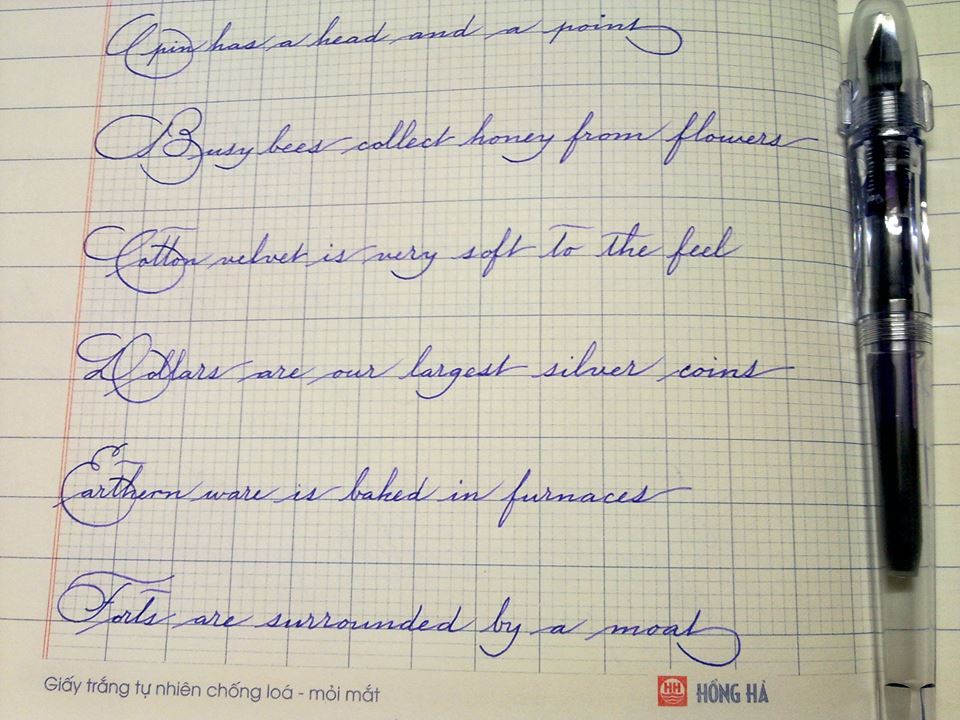 A pin has a head and a point
Busy bees collect honey from flowers
Cotton velvet is very soft to the feel
Dollars are our largest silver coins
Earthern ware is baked in furnaces
Forts are surrounded by a moat
Giấy trắng tự nhiên chống loá - mỏi mắt
HH HỒNG HÀ